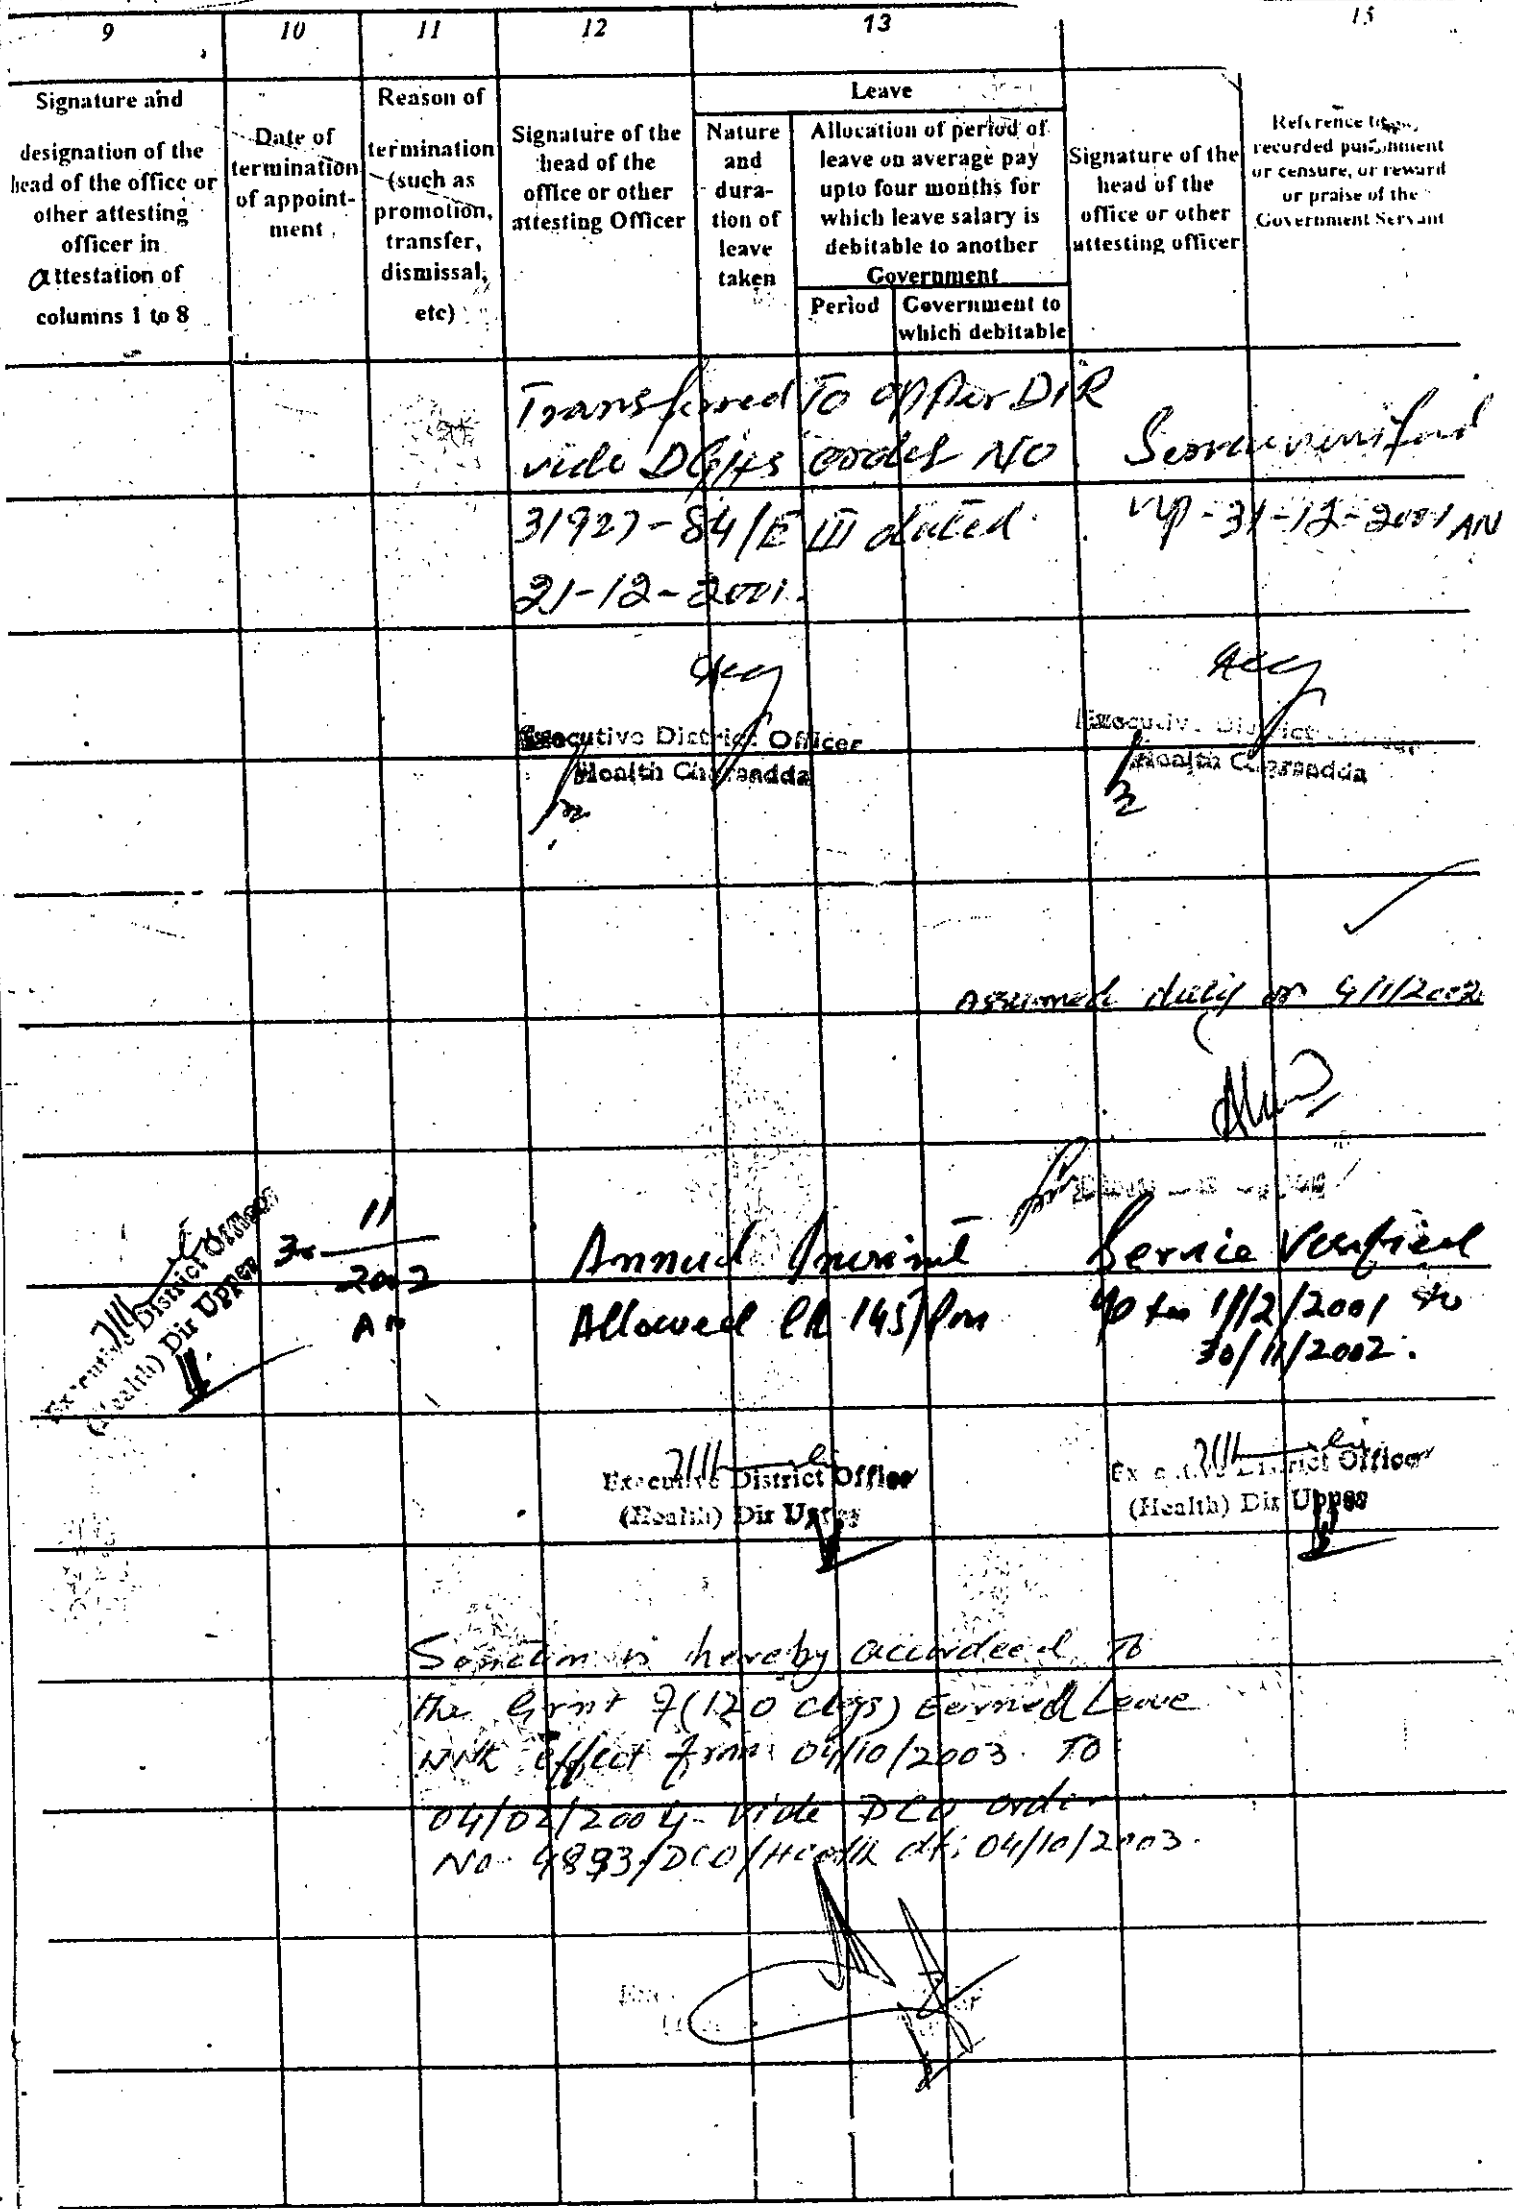 9 10 11 12 13 15
Signature and
designation of the
head of the office or
other attesting
officer in
attestation of
columns 1 to 8
Date of
termination
of appoint-
ment
Reason of
termination
(such as
promotion,
transfer,
dismissal,
etc)
Signature of the
head of the
office or other
attesting Officer
Leave
Nature
and
dura-
tion of
leave
taken
Allocation of period of
leave on average pay
upto four months for
which leave salary is
debitable to another
Government
Period
Government to
which debitable
Signature of the
head of the
office or other
attesting officer
Reference to any
recorded punishment
or censure, or reward
or praise of the
Government Servant
Transferred To Upper DIR
vide DGHS order NO
31927-84/E III dated
21-12-2001.
Service verified
up-31-12-2001 AN
Executive District Officer
Health Charsadda
Executive District Officer
Health Charsadda
Assumed duty on 4/1/2002
Executive District Officer
(Health) Dir Upper
30 11
2002
AN
Annual
Allowed 145/Pm
Service Verified
to 2001 to
30/11/2002.
Executive District Officer
(Health) Dir Upper
Executive District Officer
(Health) Dir Upper
Sanction is hereby accorded To
the Grnt of (120 days) Earned Leave
effect from 04/10/2003. TO
04/02/2004 vide DCO order
No. 4893/DCO/Health dt: 04/10/2003.